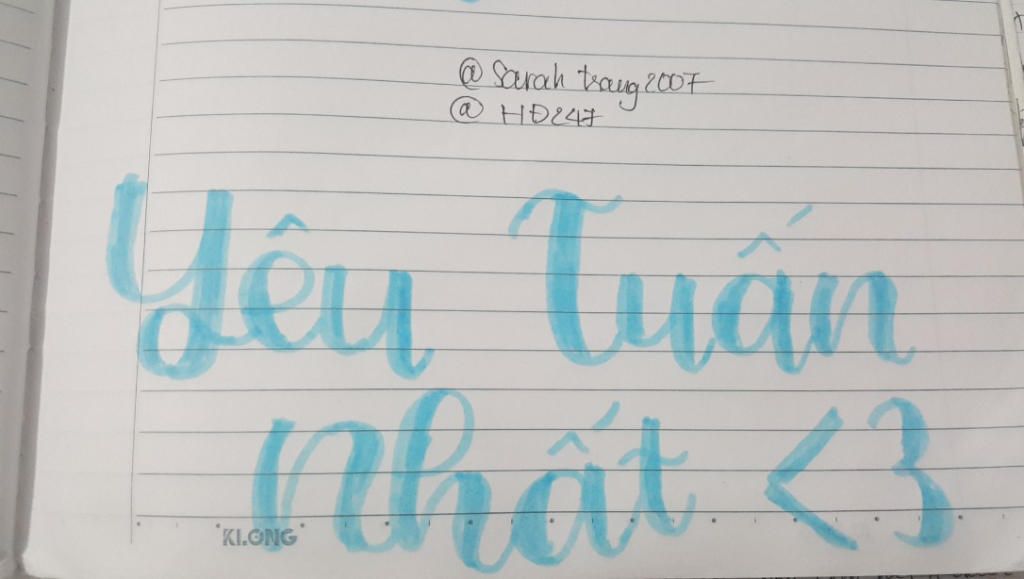 @ Sarah trang2007
@ HĐ247
Yêu Tuấn
Nhất <3
KLONG